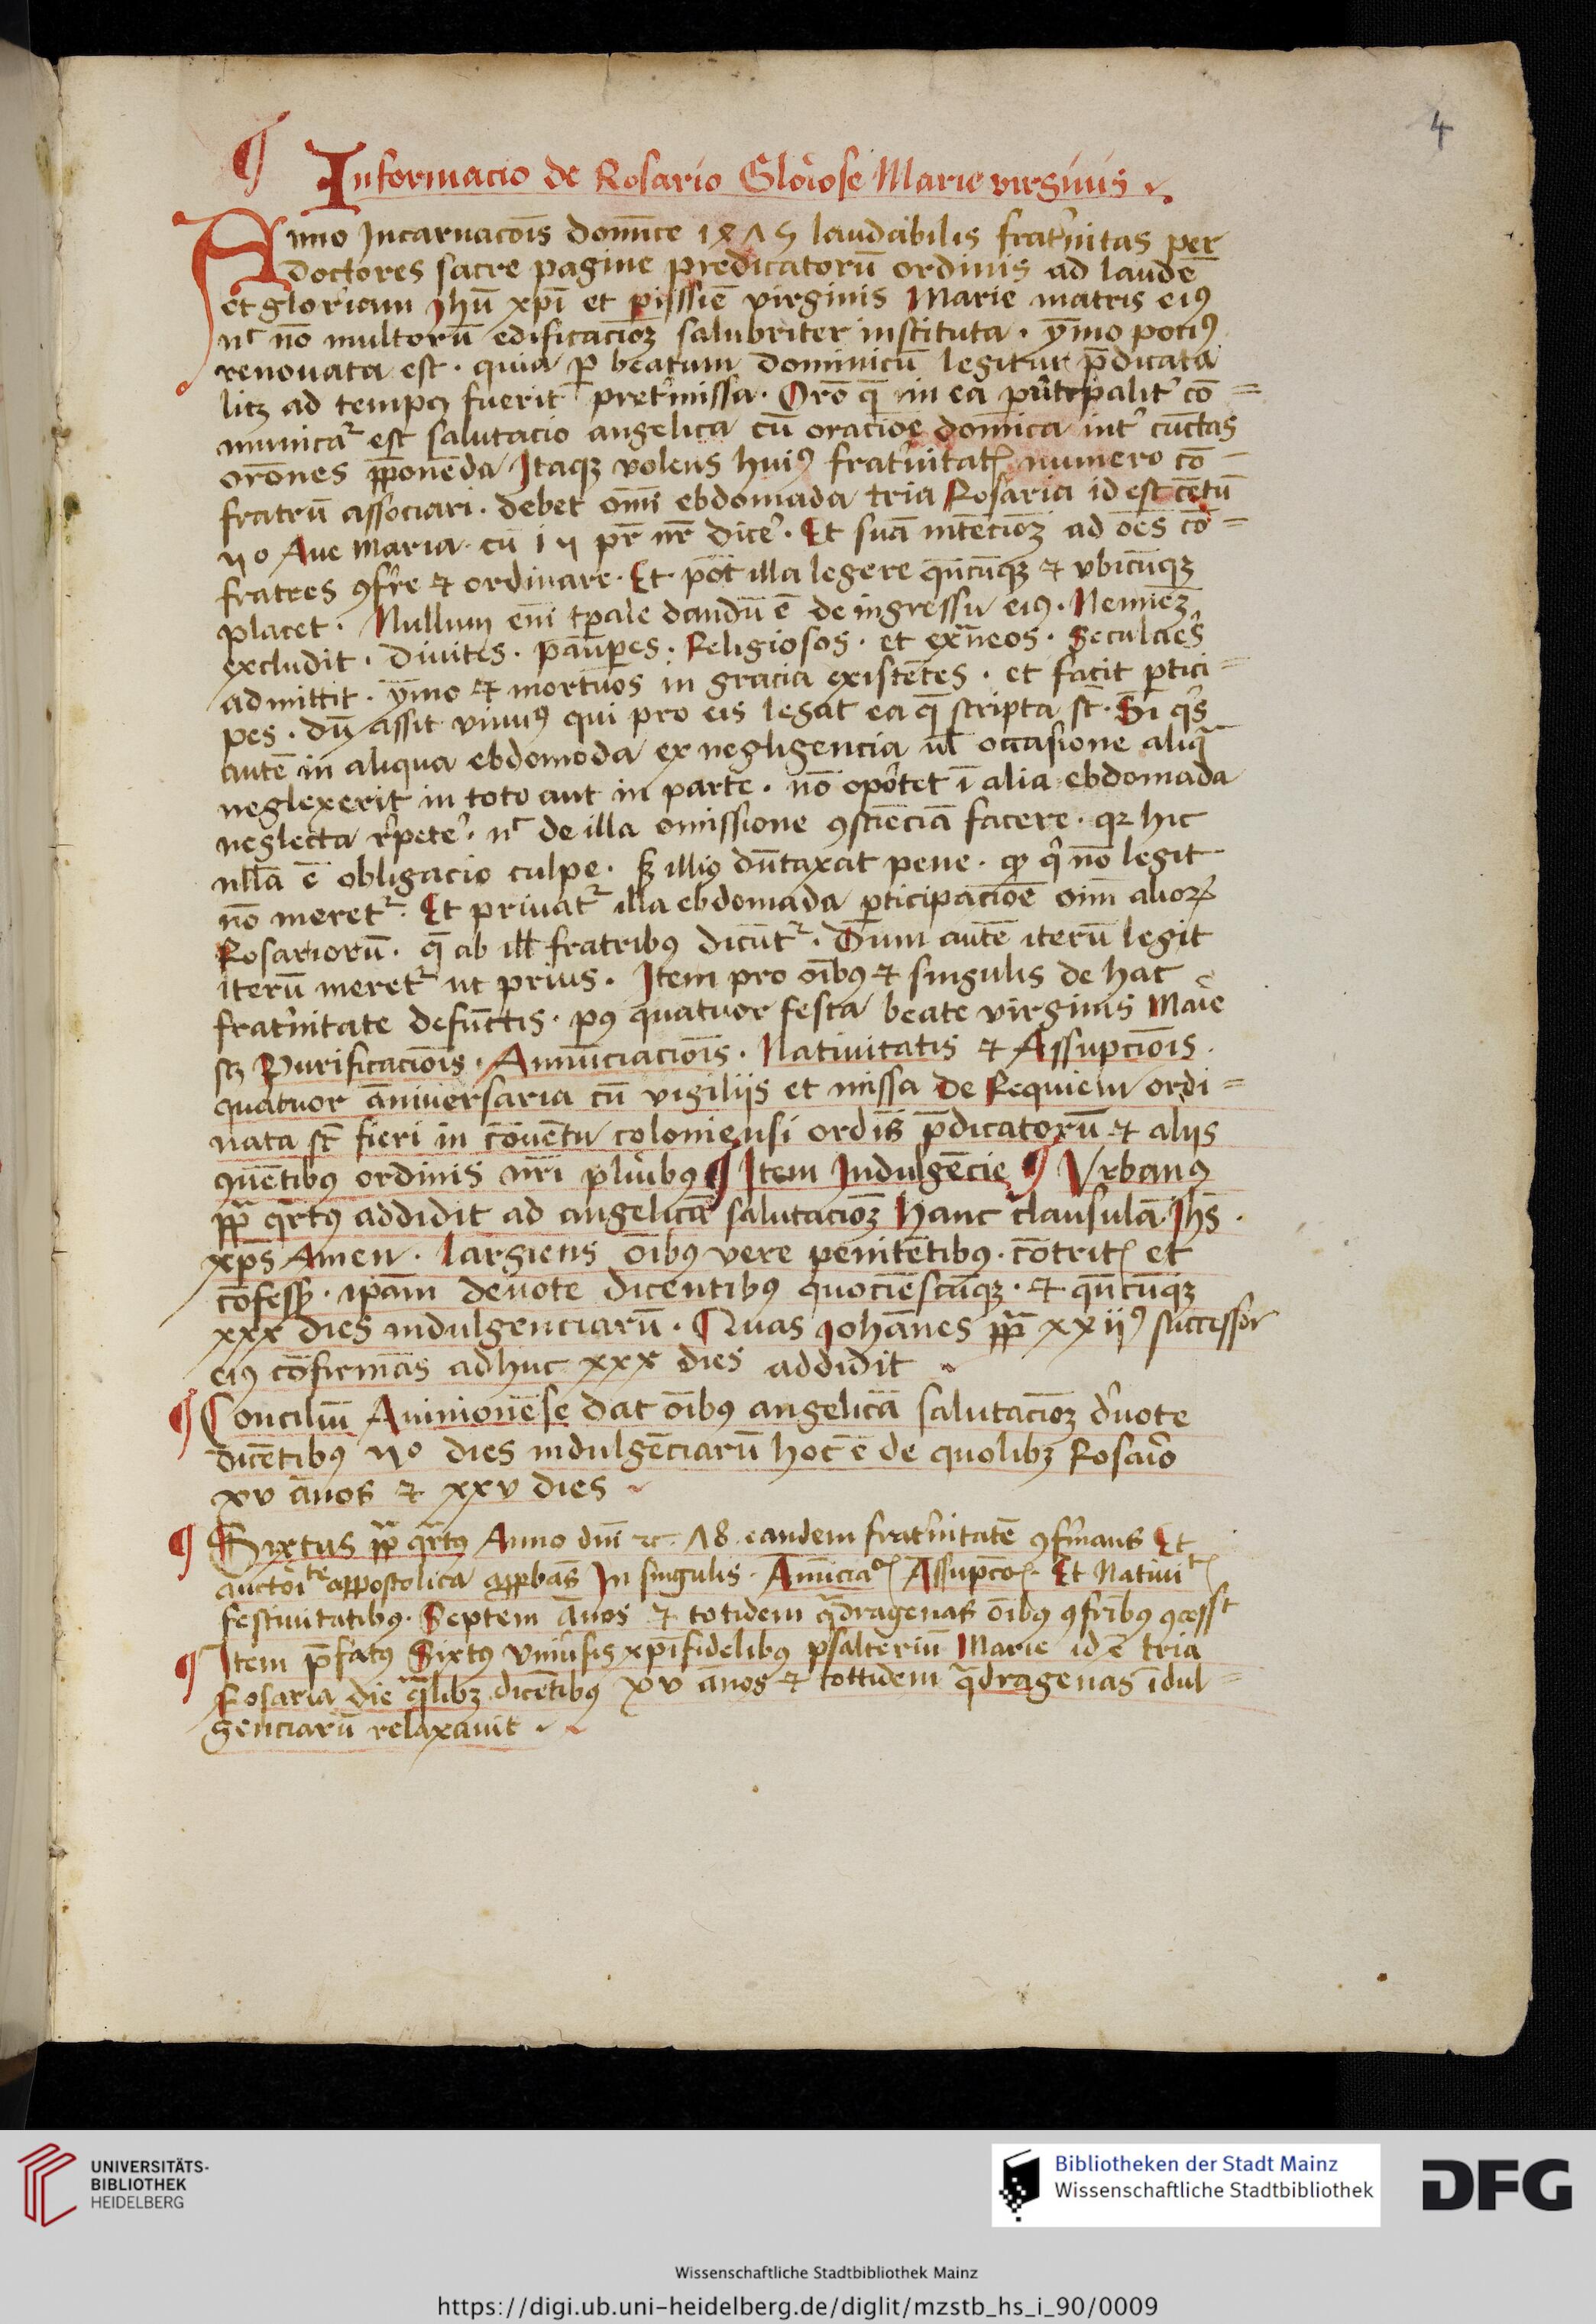 4
¶ Informacio de Rosario Gloiose Marie virginis
Anno Incarnacois domīce 1475 laudabilis frat'nitas per
doctores sacre pagine predicatorū ordinis ad laudē
et gloriam Jhū xpi et pijssiē virginis Marie matris eiꝰ
nc nō multorū edificacioꝫ salubriter instituta · ȳmo pociꝰ
renouata est · quia ꝑ beatum dominicū legitur p̄dicata
litꝫ ad tempꝰ fuerit pret'missa · Orō q̄ in ea principalit' cō=
municat̃ est salutacio angelica cū oracioē domīca int' cūctas
orōnes p̄ponenda Itaqꝫ volens huiꝰ frat'nitatꝭ numero cō=
fratrū associari · debet omī ebdomada tria Rosaria id est cētū
50 Aue maria · cū 15 pr̄ nr̄ dice' · Et suā intēcioꝫ ad oēs cō=
fratres ꝯfr're & ordinare · Et pōt illa legere qn̄cūqꝫ & vbicūqꝫ
placet · Nullum eni tꝑale dandū ē de ingressu eiꝰ · Nemiēꝫ
excludit · diuites · pauꝑes · Religiosos · et exᵃneos · Seculaēs
admittit · ȳmo & mortuos in gracia existētes · et facit ꝑtici=
pes · dū assit viuuꝰ qui pro eis legat ea q̄ scripta st̄ · Si qⁱs
autē in aliqua ebdomoda ex negligencia ul̄ occasione aliqᵃ
neglexerit in toto aut in parte · nō oportet ī alia ebdomada
neglecta r'pete' · nc de illa omissione ꝯsciēciā facere · qꝛ hic
nll̄a ē obligacio culpe · sꝫ illiꝰ dūtaxat pene · ꝙ qⁱ nō legit
nō meret̃ · Et priuat̃ illa ebdomada ꝑticipacioē oim̄ alioꝝ
Rosariorū · q̄ ab ill̄ fratribꝰ dicūt̃ · Dum autē iterū legit
iterū meret̃ ut prius · Item pro oībꝰ & singulis de hac
frat'nitate defunctis · pꝰ quatuor festa beate virginis Maiē
scꝫ Purificaciois · Annūciaciois · Natiuitatis & Assupciois ·
quatuor āniuersaria cū vigilijs et missa de Requiem ordi=
nata st̄ fieri in cōuētu coloniensi ordīs p̄dicatorū & alijs
ꝯuētibꝰ ordinis nr̄i pluribꝰ ¶ Item Indulgēcie ¶ Vrbanꝰ
pp̄ qᵃrtꝰ addidit ad angelicā salutacioꝫ hanc clausulā Jhs̄ ·
xps̄ Amen · largiens oībꝰ vere penitētibꝰ · cōtritꝭ et
cōfessꝭ · ipam̄ deuote dicentibꝰ quociēscūqꝫ · & qn̄cūqꝫ
xxx dies indulgenciarū · Quas Johānes pp̄ xxijꝰ successor
eiꝰ cōfirmās adhuc xxx dies addidit
¶ Conciliū Auinionēse dat oībꝰ angelicā salutacioꝫ d'uote
dicētibꝰ dies indulgēciarū hoc ē de quolibꝫ Rosaio
xv ānos & xxv dies
¶ Sixtus pp̄ qᵃrtꝰ Anno dn̄i ⁊c 78 eandem frat'nitatē ꝯfirmans Et
auctoīᵗᵉ appostolica In singulis · Assupcoꝭ · Et Natiuitꝭ
festiuitatibꝰ · Septem ānos & totidem qᵃdragenas oībꝰ ꝯfribꝰ ꝯcessᵗ
¶ Item p̄fatꝰ Sixtꝰ Vniu'sis xpifidelibꝰ psalteriū Marie id ē tria
Rosaria die qᵃlibꝫ dicētibꝰ xv ānos & tottidem qᵃdragenas īdul=
genciarū relaxauit
UNIVERSITÄTS-
BIBLIOTHEK
HEIDELBERG
Bibliotheken der Stadt Mainz
Wissenschaftliche Stadtbibliothek
DFG
Wissenschaftliche Stadtbibliothek Mainz
https://digi.ub.uni-heidelberg.de/diglit/mzstb_hs_i_90/0009